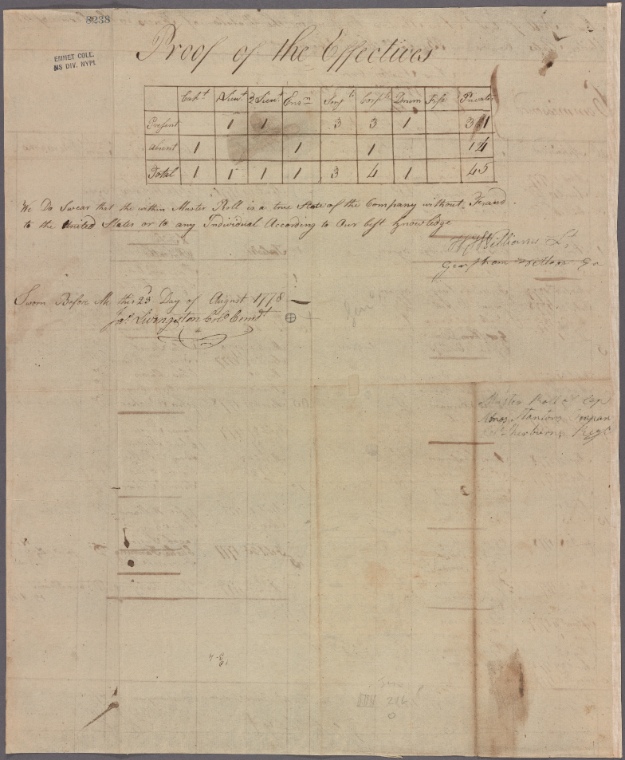 8238
EMMET COLL.
MS DIV. NYPL
Proof of the Effectives
Capt 1 Lieut 2 Lieut Ens Serjts Corpls Drum Fife Privates
Present 1 1 3 3 1 31
Absent 1 1 1 14
Total 1 1 1 1 3 4 1 45
We Do Swear that the within Muster Roll is a true State of the Company without Fraud
to the United States or to any Individual According to Our best Knowledge
Williams Lt
Sworn Before Me this 25 Day of August 1778
Jas Livingston Colo
Muster Roll Capt
Amos Stantons
Sherburns Regt
216